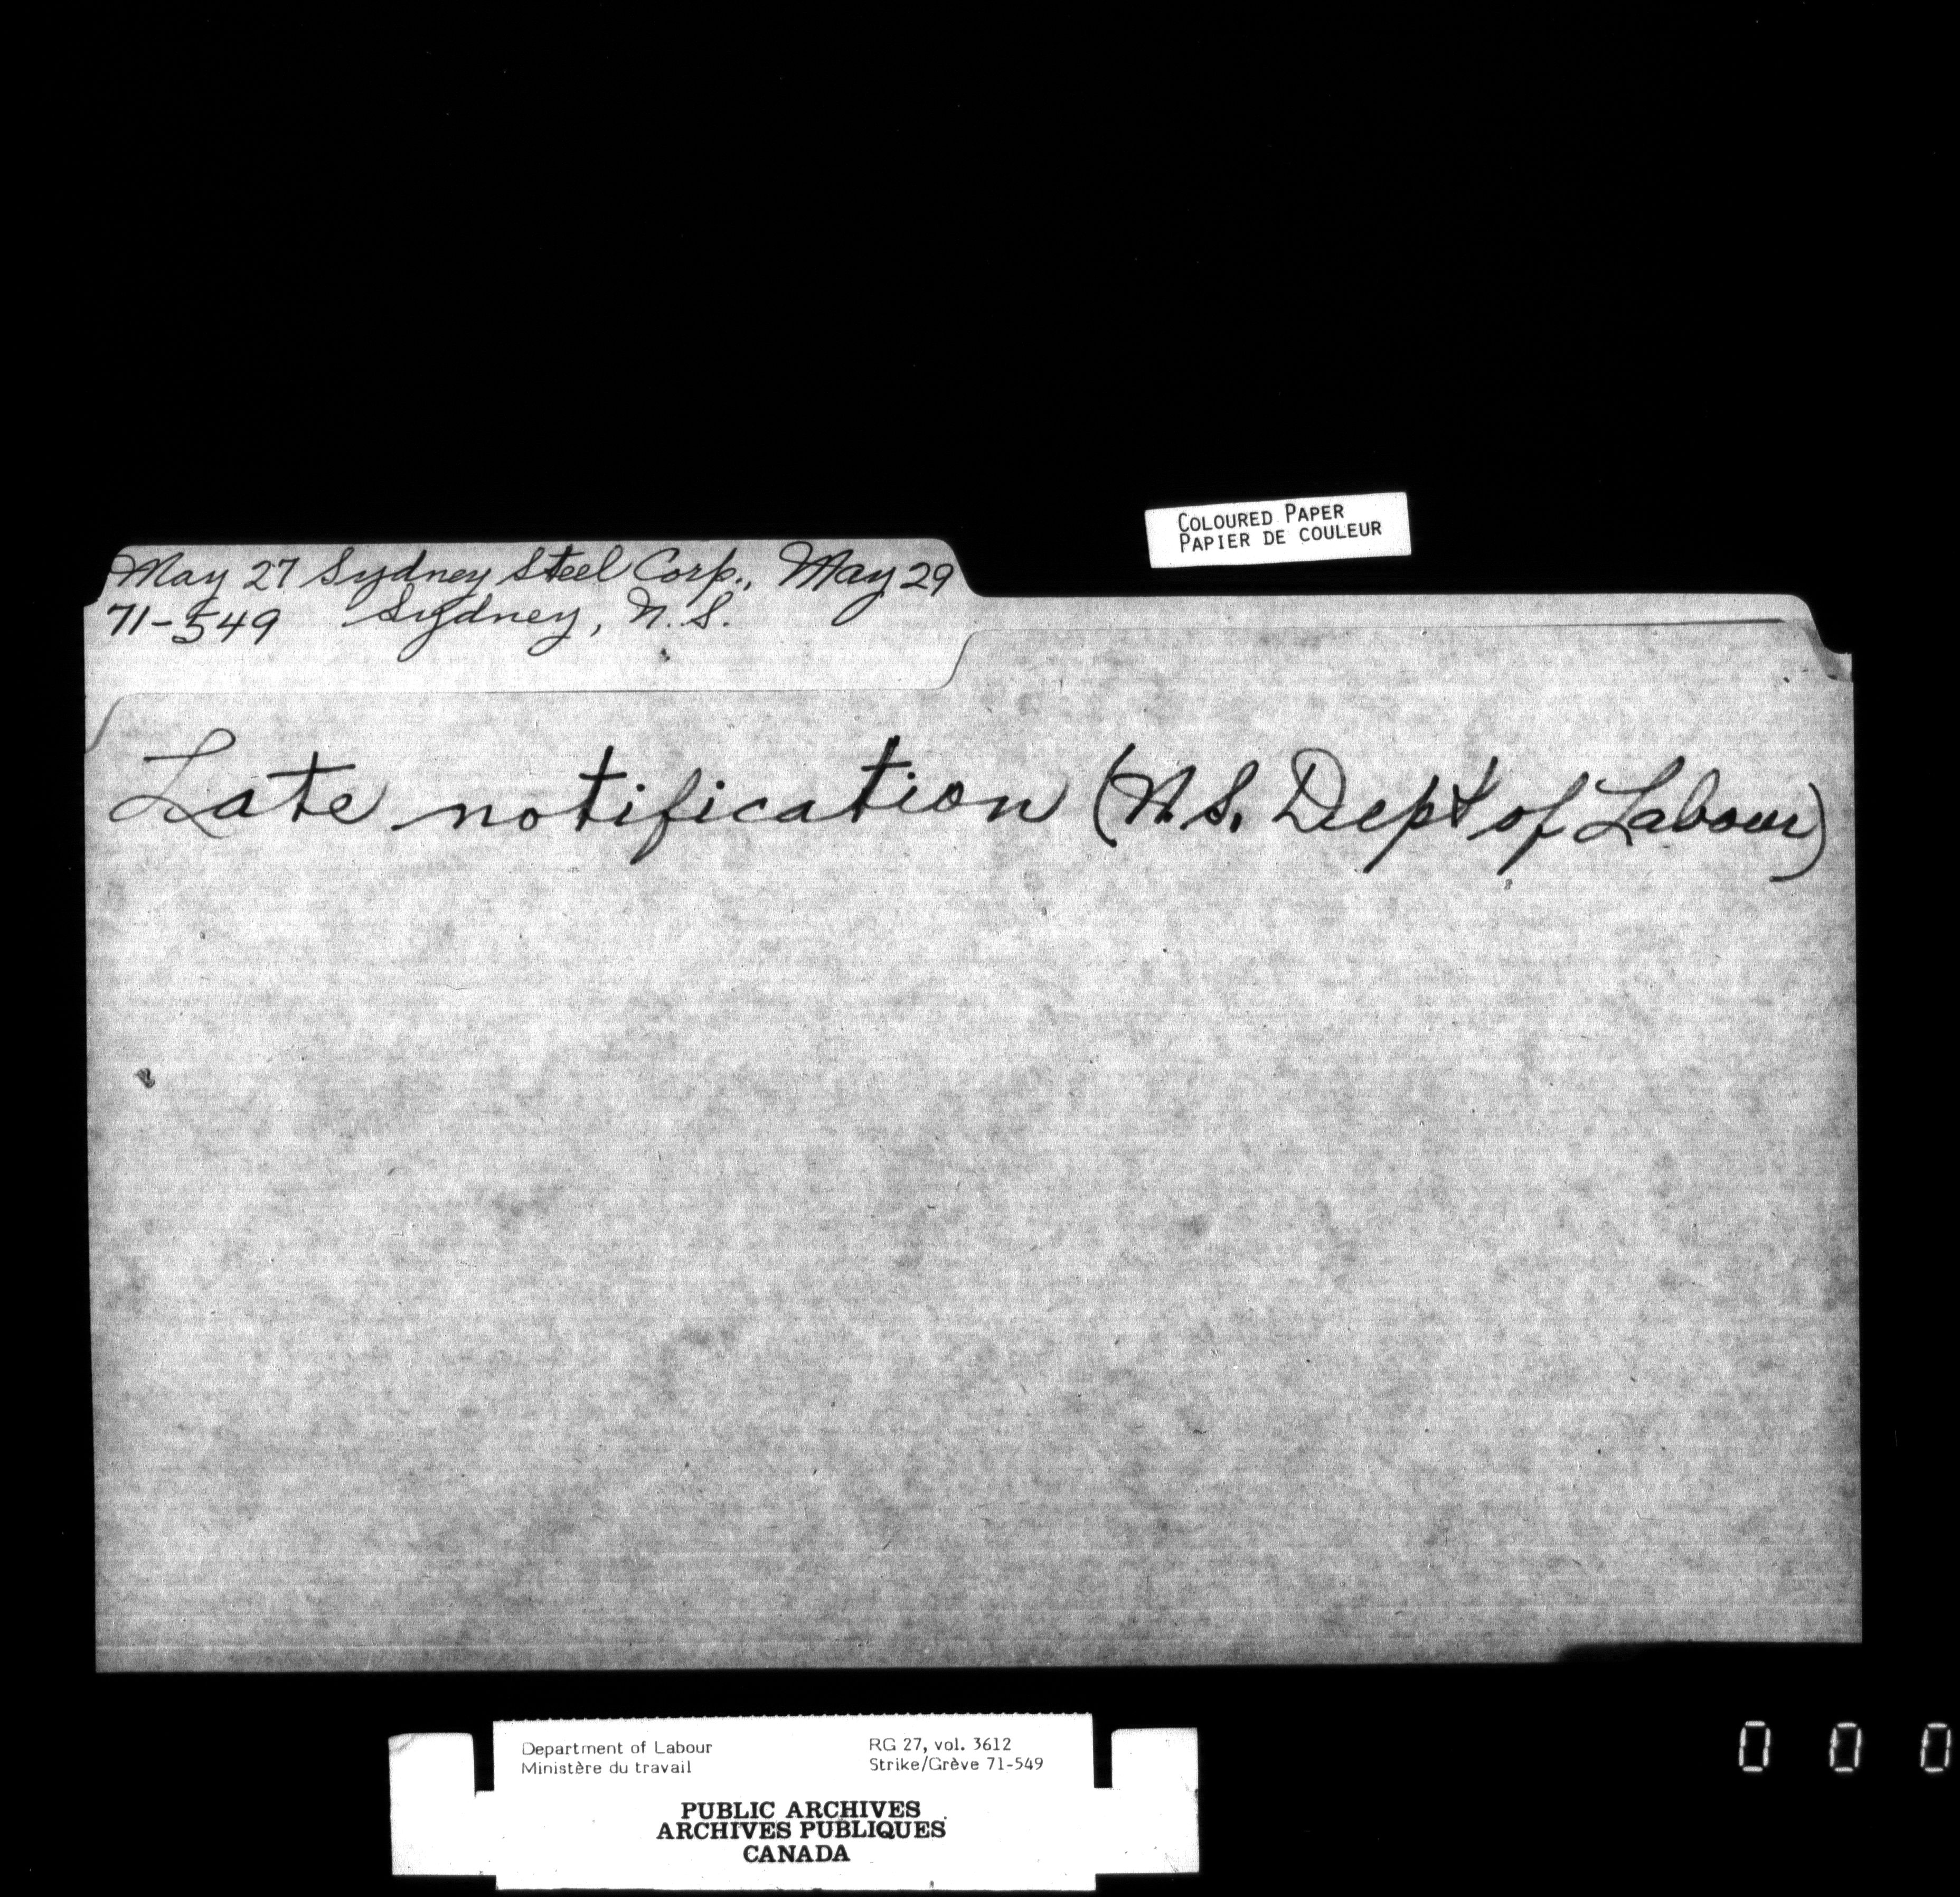 COLOURED PAPER
PAPIER DE COULEUR
May 27 Sydney Steel Corp., May 29
71-549 Sydney, N.S.
Late notification (N.S. Dept of Labour)
Department of Labour
Ministère du travail
RG 27, vol. 3612
Strike/Grève 71-549
PUBLIC ARCHIVES
ARCHIVES PUBLIQUES
CANADA
0 0 0